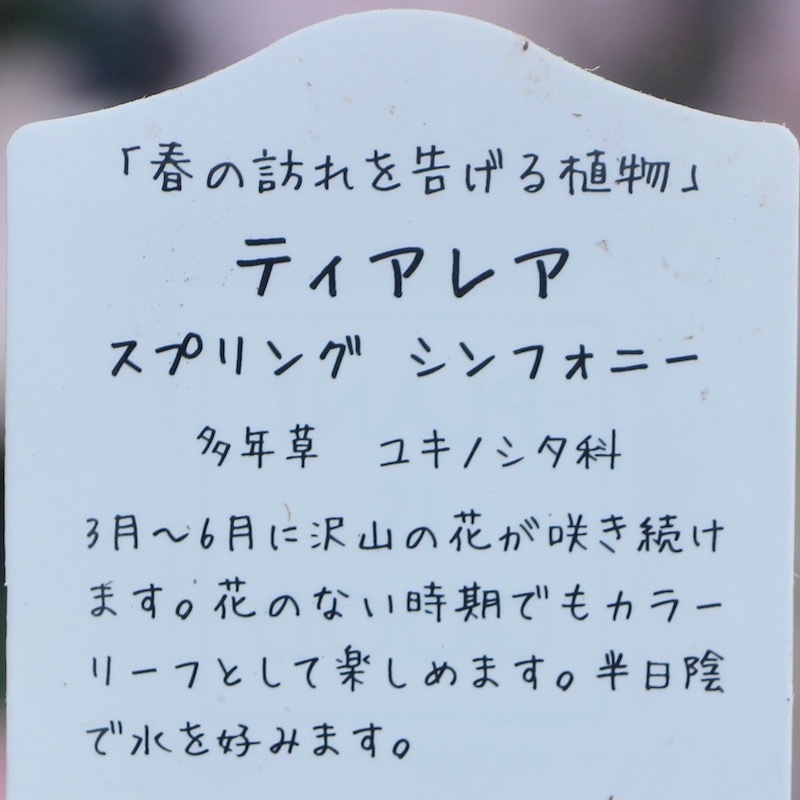 「春の訪れを告げる植物」
ティアレア
スプリング シンフォニー
多年草 ユキノシタ科
3月〜6月に沢山の花が咲き続け
ます。花のない時期でもカラー
リーフとして楽しめます。半日陰
で水を好みます。